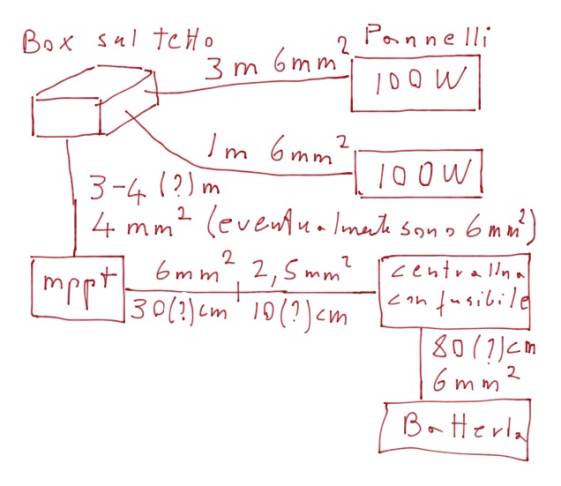 Box sul tetto
Pannelli
3m 6mm²
100W
1m 6mm²
100W
3-4 (?)m
4mm² (eventualmente sono 6mm²)
mppt
6mm² 2,5mm²
30(?)cm 10(?)cm
centralina
con fusibile
80(?)cm
6mm²
Batteria